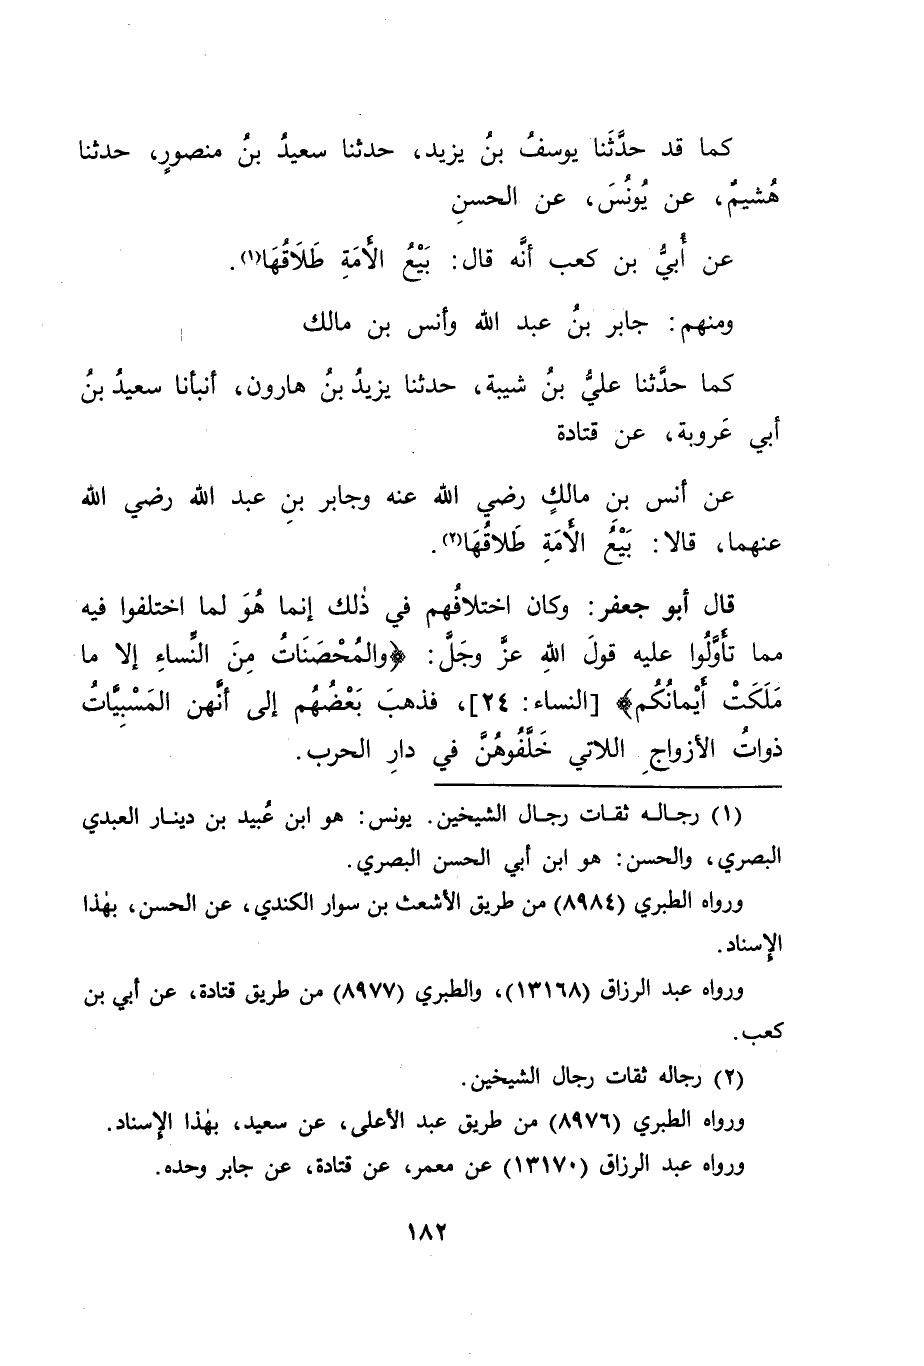 كما قد حدَّثَنا يوسفُ بنُ يزيد، حدثنا سعيدُ بنُ منصورٍ، حدثنا
هُشيمٌ، عن يُونُسَ، عن الحسنِ
عن أُبيُّ بن كعب أنَّه قال: بَيْعُ الأَمَةِ طَلَاقُهَا(١).
ومنهم: جابر بنُ عبد الله وأنس بن مالك
كما حدَّثنا عليُّ بنُ شيبة، حدثنا يزيدُ بنُ هارون، أنبأنا سعيدُ بنُ
أبي عَروبة، عن قتادة
عن أنس بن مالكٍ رضي الله عنه وجابر بنِ عبد الله رضي الله
عنهما، قالا: بَيْعُ الأَمَةِ طَلاقُهَا(٢).
قال أبو جعفر: وكان اختلافُهم في ذٰلك إنما هُوَ لما اختلفوا فيه
مما تأَوَّلُوا عليه قولَ اللهِ عزَّ وجَلَّ: ﴿والمُحْصَنَاتُ مِنَ النِّساءِ إلا ما
مَلَكَتْ أَيْمانُكُم﴾ [النساء: ٢٤]، فذهبَ بَعْضُهُم إلى أنَّهن المَسْبِيَّاتُ
ذواتُ الأزواجِ اللاتي خَلَّفُوهُنَّ في دارِ الحرب.
(١) رجاله ثقات رجال الشيخين. يونس: هو ابن عُبيد بن دينار العبدي
البصري، والحسن: هو ابن أبي الحسن البصري.
ورواه الطبري (٨٩٨٤) من طريق الأشعث بن سوار الكندي، عن الحسن، بهٰذا
الإسناد.
ورواه عبد الرزاق (١٣١٦٨)، والطبري (٨٩٧٧) من طريق قتادة، عن أبي بن
كعب.
(٢) رجاله ثقات رجال الشيخين.
ورواه الطبري (٨٩٧٦) من طريق عبد الأعلى، عن سعيد، بهٰذا الإسناد.
ورواه عبد الرزاق (١٣١٧٠) عن معمر، عن قتادة، عن جابر وحده.
١٨٢